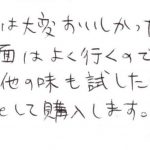 は大変おいしかった
面はよく行くので
他の味も試した
として購入します。